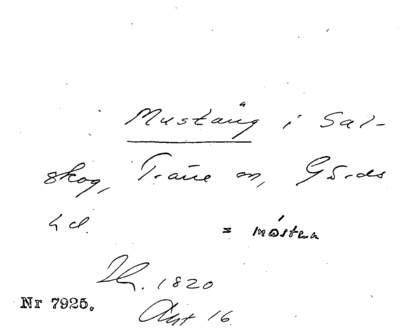 Mustäng i Sal-
skog, Träne sn, Gärds
hd. = mósten
Lh. 1820
Nr 7925. Akt 16